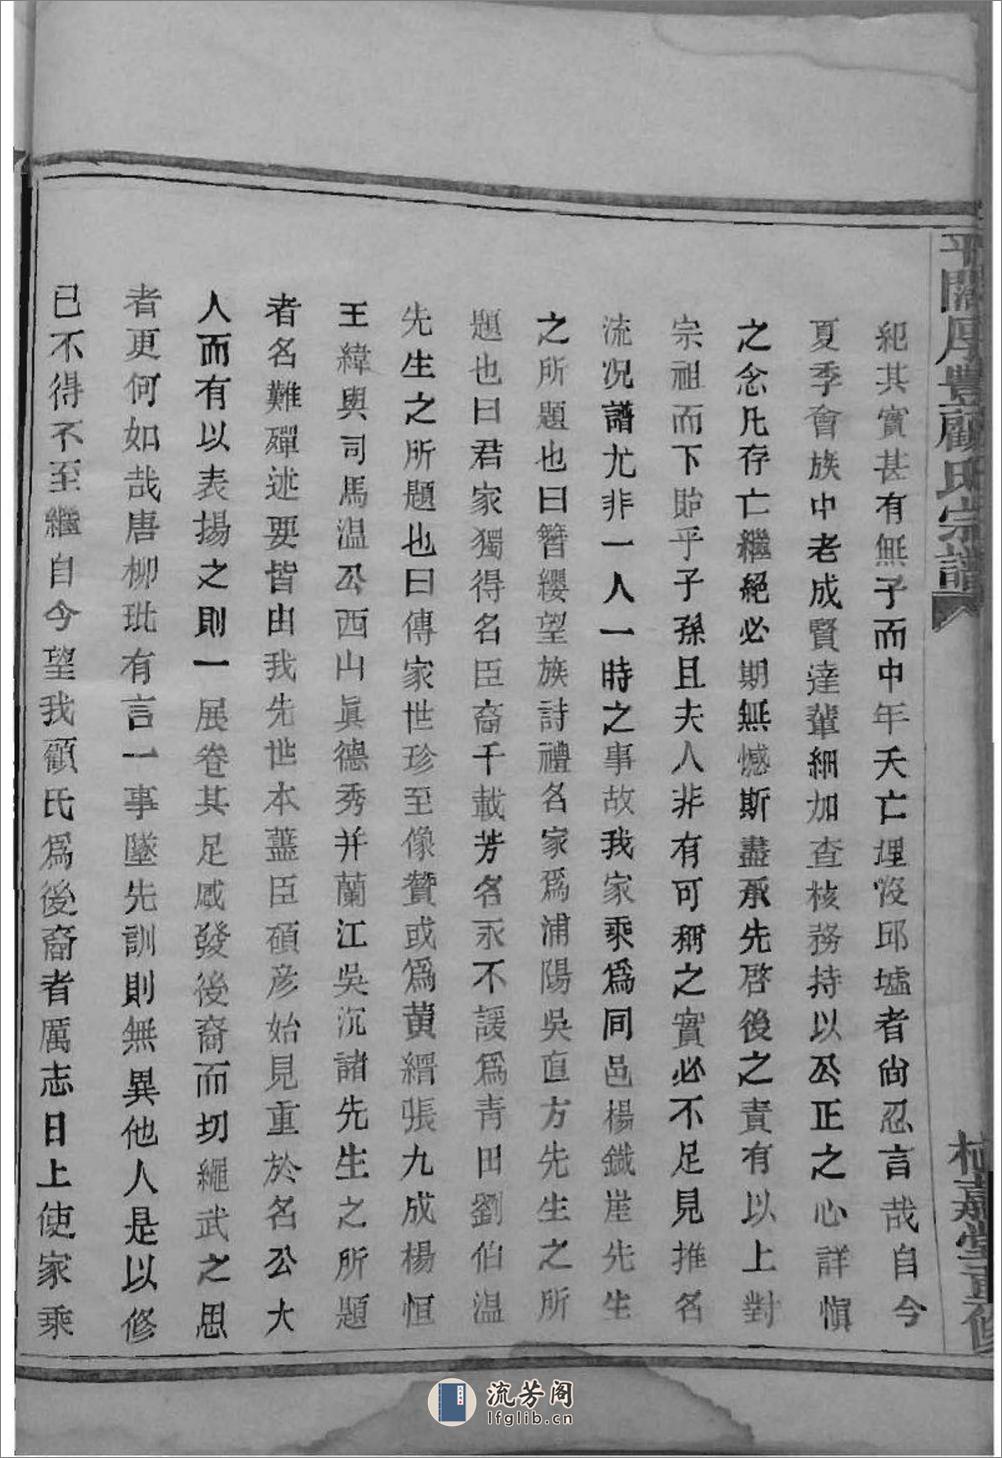 平闊厚豐顧氏宗譜
紀其實甚有無子而中年夭亡埋沒邱墟者尚忍言哉自今
夏季會族中老成賢達輩細加查核務持以公正之心詳慎
之念凡存亡繼絕必期無憾斯盡承先啓後之責有以上對
宗祖而下貽乎子孫且夫人非有可稱之實必不足見推名
流况譜尤非一人一時之事故我家乘爲同邑楊鐵崖先生
之所題也曰簪纓望族詩禮名家爲浦陽吳直方先生之所
題也曰君家獨得名臣裔千載芳名永不諼爲青田劉伯温
先生之所題也曰傳家世珍至像贊或爲黄縉張九成楊恒
王緯與司馬温公西山眞德秀并蘭江吳沉諸先生之所題
者名難殫述要皆由我先世本藎臣碩彥始見重於名公大
人而有以表揚之則一展卷其足感發後裔而切繩武之思
者更何如哉唐柳玭有言一事墜先訓則無異他人是以修
已不得不至繼自今望我顧氏爲後裔者厲志日上使家乘
嘉堂
修
流芳阁
lfglib.cn